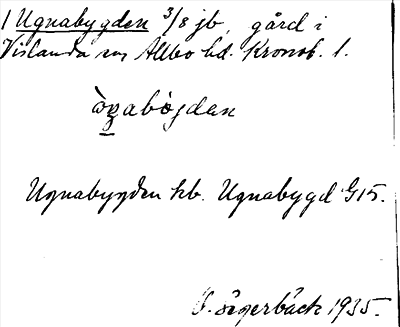 1 Ugnabygden 3/8 jb, gård i
Vislanda sn, Allbo hd. Kronob. l.
Ugnabygden kb. Ugnabygd G15.
Segerbäck 1935.